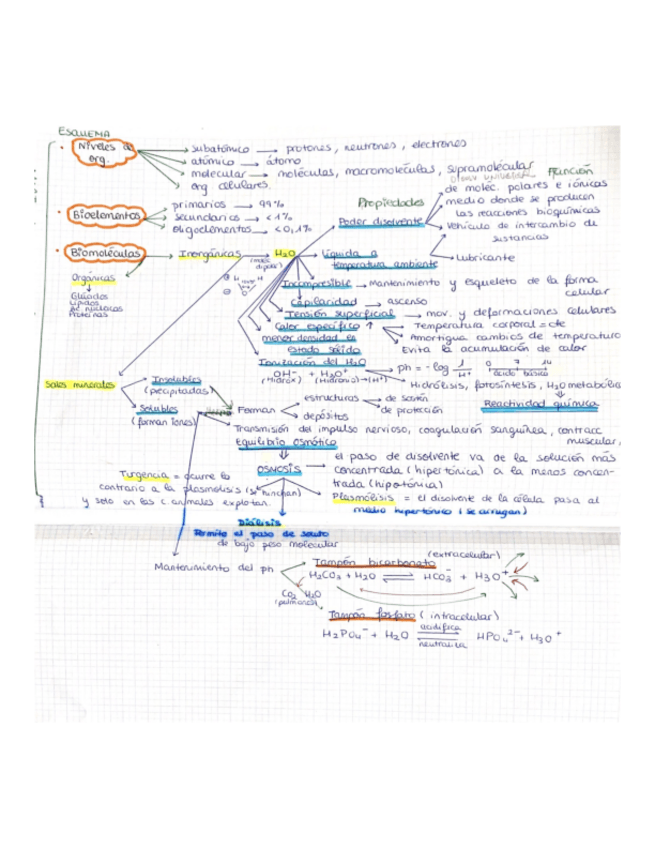 ESQUEMA
Niveles de org.
subatómico → protones, neutrones, electrones
atómico → átomo
molecular → moléculas, macromoléculas, supramolecular
org celulares.
Bioelementos
primarios → 99%
secundarios < 1%
oligoelementos < 0,1%
Propiedades
Función
Poder disolvente
de moléc. polares e iónicas
medio donde se producen
las reacciones bioquímicas
Vehículo de intercambio de
sustancias
Biomoléculas → Inorgánicas → H2O
Líquida a
temperatura ambiente
Lubricante
Orgánicas
Glúcidos
Lípidos
Ac nucleicos
Proteínas
Incompresible → Mantenimiento y esqueleto de la forma
celular
Capilaridad → ascenso
Tensión superficial → mov. y deformaciones celulares
Calor específico ↑
Temperatura corporal = cte
Amortigua cambios de temperatura
Evita la acumulación de calor
menor densidad en
estado sólido
Ionización del H2O
OH- + H3O+
(Hidrox) (Hidronio)→(H+)
ph = -log 1/H+
0 7 14
ácido básico
Hidrólisis, fotosíntesis, H2O metabólica
Reactividad química
Sales minerales
Insolubles
(precipitadas)
Solubles
(forman iones)
Forman
estructuras → de sostén
de protección
depósitos
Transmisión del impulso nervioso, coagulación sanguínea, contracc
muscular,
Equilibrio osmótico
OSMOSIS
el paso de disolvente va de la solución más
concentrada (hipertónica) a la menos concen-
trada (hipotónica)
Turgencia = ocurre lo
contrario a la plasmólisis (se hinchan)
y solo en las c. animales explotan.
Plasmólisis = el disolvente de la célula pasa al
medio hipertónico (se arrugan)
Diálisis
Permite el paso de soluto
de bajo peso molecular
Mantenimiento del ph
Tampón bicarbonato
(extracelular)
H2CO3 + H2O ⇌ HCO3- + H3O+
CO2 H2O
(pulmones)
Tampón fosfato (intracelular)
H2PO4- + H2O ⇌ HPO4 2- + H3O+
acidifica
neutraliza